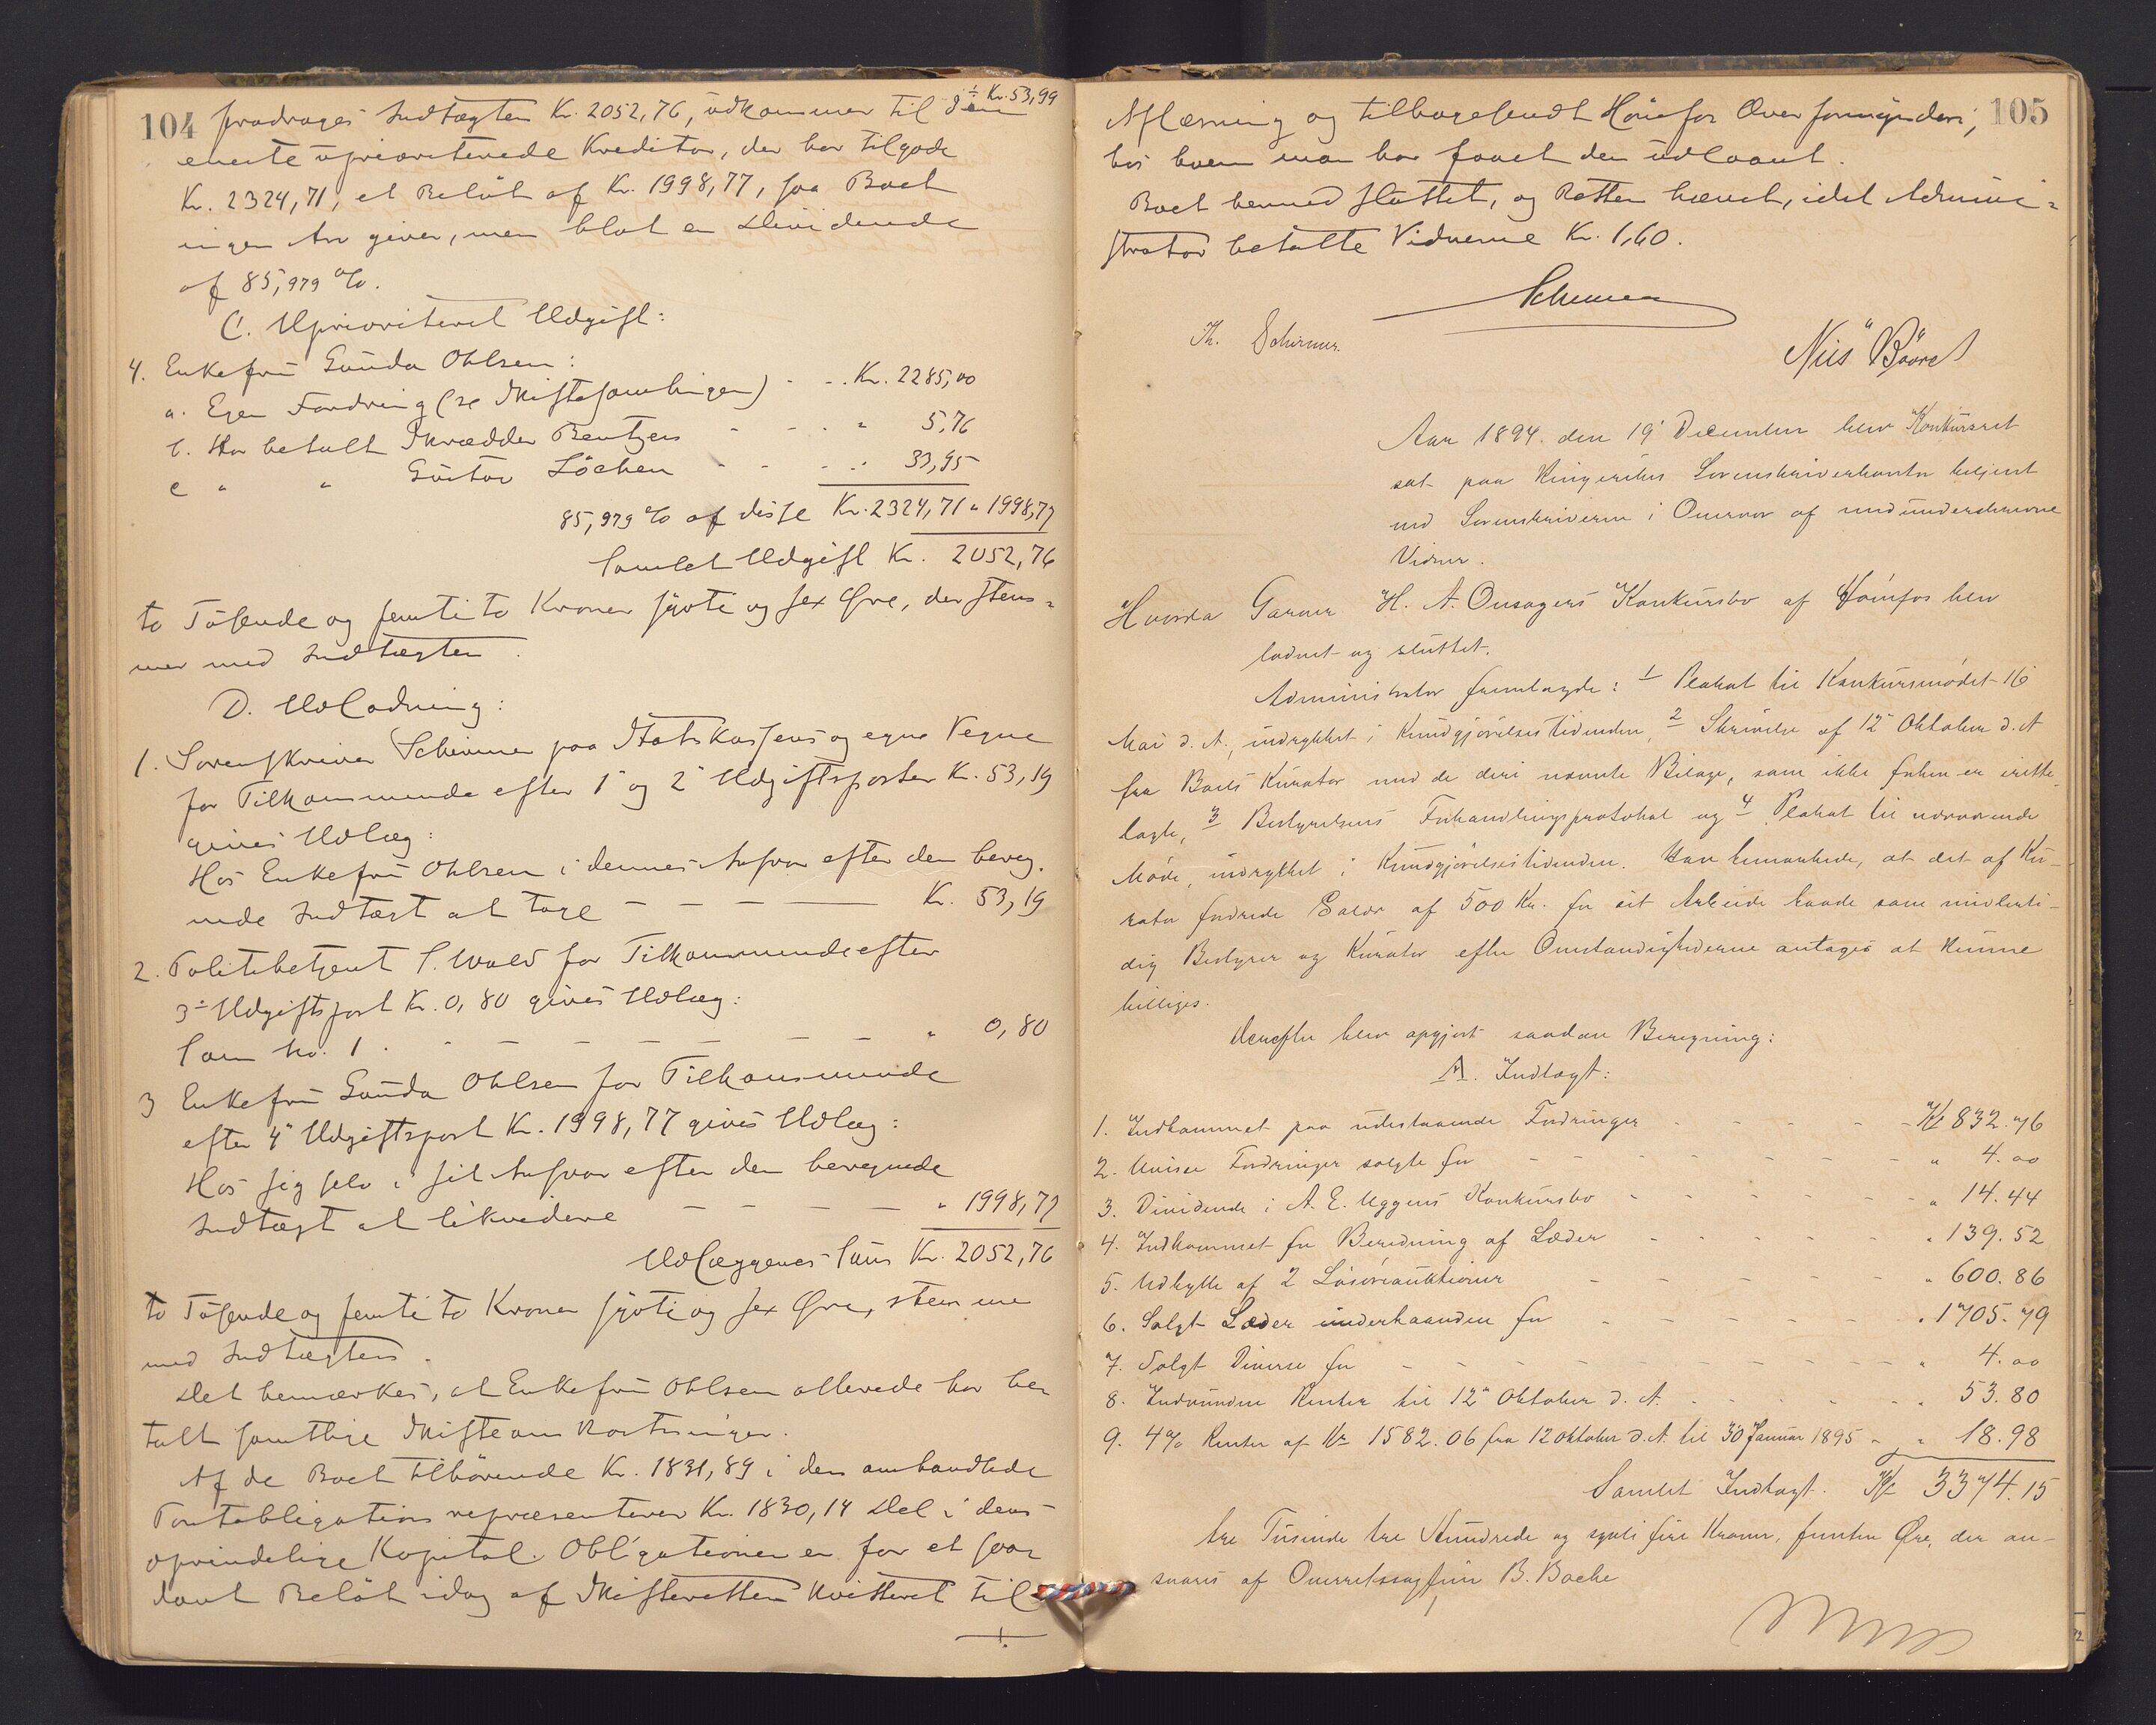 104
÷ Kr. 53,99
fradrages Indtægten Kr. 2052,76, udkommer til den
eneste uprioriterede Kreditor, der har tilgode
Kr. 2324,71, et Beløb af Kr. 1998,77, saa Boet
ingen Arv giver, men blot en Dividende
af 85,979 %.
C. Uprioriteret Udgift:
4. Enkefru Gunda Ohlsen:
a. Egen Fordring (se Skiftesamlingen) - .. Kr. 2285,00
b. Har betalt Skrædder Bentzen - - - " 5,76
c " " Gustav Löchen - - - .. 33,95
85,979 % af disse Kr. 2324,71 " 1998,77
Samlet Udgift Kr. 2052,76
to Tusende og femti to Kroner sytti og sex Øre, der stem=
mer med Indtægten.
D. Udlodning:
1. Sorenskriver Schirmer paa Statskassens og egne Vegne
for Tilkommende efter 1' og 2' Udgiftsposter Kr. 53,19
gives Udlæg:
Hos Enkefru Ohlsen i dennes Ansvar efter den bereg-
nede Indtægt at tage - - - Kr. 53,19
2. Politibetjent S. Wold for Tilkommende efter
3' Udgiftspost Kr. 0,80 gives Udlæg:
Som No. 1. - - - - - - " 0,80
3 Enkefru Gunda Ohlsen for Tilkommende
efter 4' Udgiftspost Kr. 1998,77 gives Udlæg:
Hos sig selv i sit Ansvar efter den beregnede
Indtægt at likvidere - - - - " 1998,77
Udlæggenes Sum Kr. 2052,76
to Tusende og femti to Kroner sytti og sex Øre, stemme
med Indtægten.
Det bemærkes, at Enkefru Ohlsen allerede har be
talt samtlige Skifteomkostninger.
Af de Boet tilhørende Kr. 1831,89 i den omhandlede
Pantobligation repræsenterer Kr. 1830,14 Del i dens
oprindelige Kapital. Obligationen er for et saa
dant Beløb idag af Skifteretten kvitteret til
105
Aflæsning og tilbagesendt Hønefos Overformynderi,
hos hvem man har faaet den udlaant.
Boet hermed sluttet, og Retten hævet, idet Admini=
strator betalte Vidnerne Kr. 1,60.
Schirmer
Th. Schirmer.
Nils Bööre
Aar 1894 den 19' December blev Konkursret
sat paa Ringerikes Sorenskriverkontor betjent
med Sorenskriveren i Overvær af medunderskrevne
Vidner.
Hvorda Garver H. A. Onsagers Konkursbo af Hønefos blev
lodnet og sluttet.
Administrator fremlagde: 1 Plakat til Konkursmødet 16
Mai d. A., indrykket i Kundgjørelsestidenden, 2 Skrivelse af 12' Oktober d. A
fra Boets Kurator med de deri nævnte Bilage, som ikke forhen er irette-
lagte, 3 Bestyrelsens Forhandlingsprotokol og 4 Plakat til nærværende
Møde, indrykket i Kundgjørelsestidenden. Han bemærkede, at det af Ku-
rator fordrede Salær af 500 Kr. for sit Arbeide baade som midlerti-
dig Bestyrer og Kurator efter Omstændighederne antages at kunne
billiges.
Derefter blev opgjort saadan Beregning:
A. Indtægt:
1. Indkommet paa udestaaende Fordringer - - - - - Kr 832.76
2. Uvisse Fordringer solgte for - - - - - " 4.00
3. Dividende i A. E. Uggens Konkursbo - - - - - " 14.44
4. Indkommet for Beredning af Læder - - - - - " 139.52
5. Udbytte af 2 Løsøreauktioner - - - - - " 600.86
6. Solgt Læder underhaanden for - - - - - " 1705.79
7. Solgt Diverse for - - - - - " 4.00
8. Indvundne Renter til 12' Oktober d. A. - - - - " 53.80
9. 4% Renter af Kr 1582.06 fra 12 Oktober d. A. til 30 Januar 1895 - " 18.98
Samlet Indtægt. Kr 3374.15
tre Tusinde tre Hundrede og sytti fire Kroner, femten Øre, der an-
svares af Overretssagfører B. Bache